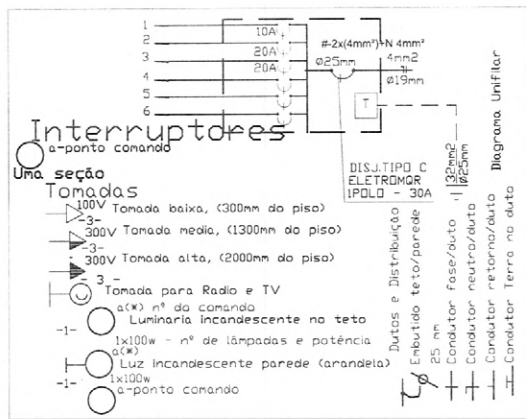 1
2
3
4
5
6
10A
20A
20A
#-2x(4mm²)+N 4mm²
Ø25mm
4mm2
Ø19mm
T
32mm2
Ø25mm
Diagrama Unifilar
DISJ.TIPO C
ELETROMQR
1POLO - 30A
Interruptores
a-ponto comando
Uma seção
Tomadas
100V Tomada baixa, (300mm do piso)
-3-
300V Tomada media, (1300mm do piso)
-3-
300V Tomada alta, (2000mm do piso)
- 3 -
Tomada para Radio e TV
a(*) nº do comando
Luminaria incandescente no teto
-1-
1x100w - nº de lâmpadas e potência
a(*)
Luz incandescente parede (arandela)
-1-
1x100w
a-ponto comando
Dutos e Distribuição
Embutido teto/parede
25 mm
Condutor fase/duto
Condutor neutro/duto
Condutor retorno/duto
Condutor Terra no duto